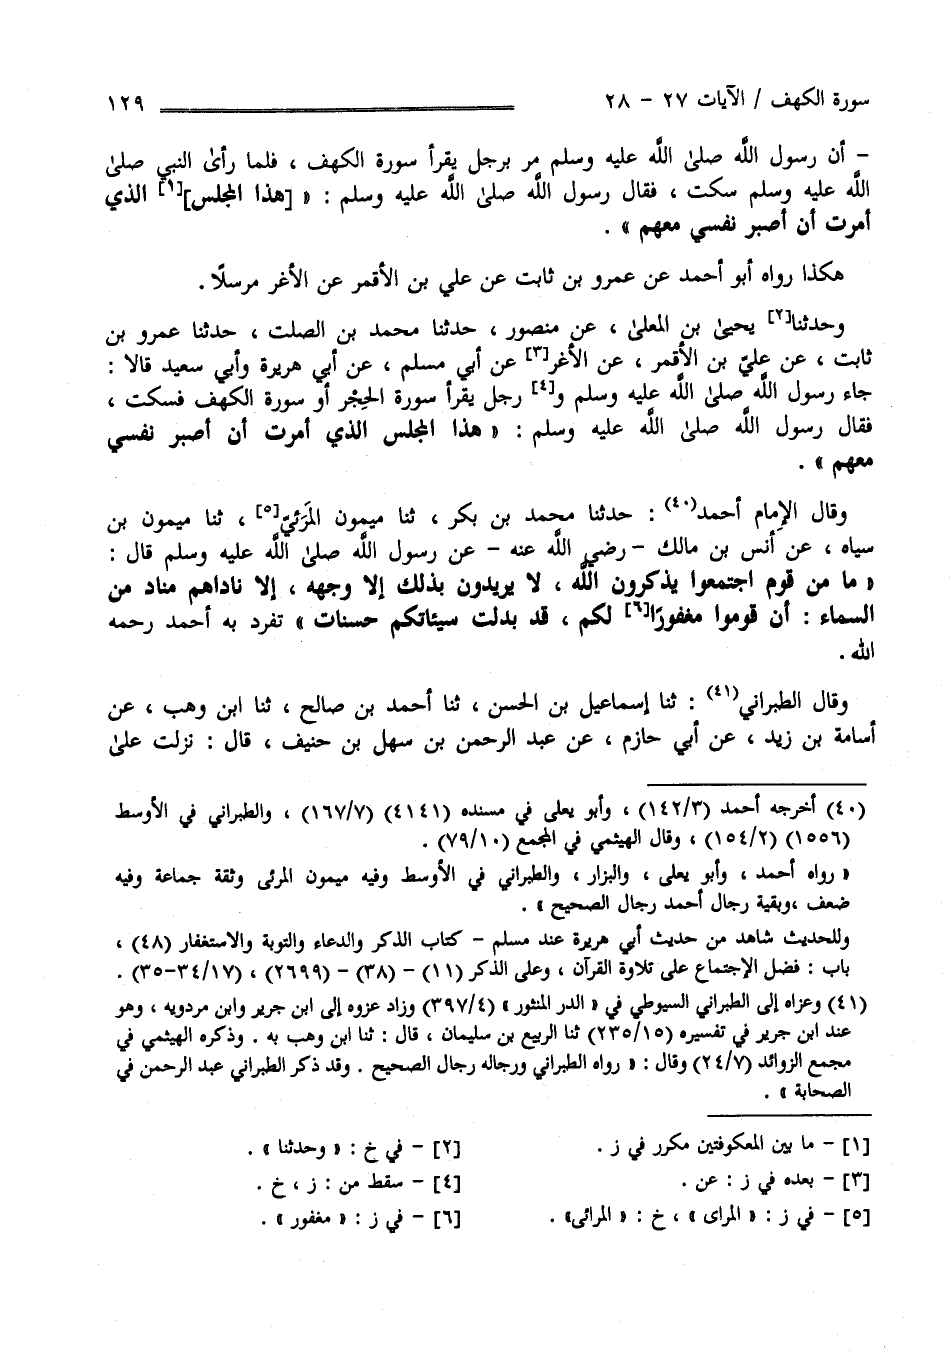 سورة الكهف / الآيات ٢٧ - ٢٨ ١٢٩
- أن رسول اللَّه صلىٰ اللَّه عليه وسلم مر برجل يقرأ سورة الكهف ، فلما رأىٰ النبي صلىٰ
اللَّه عليه وسلم سكت ، فقال رسول اللَّه صلىٰ اللَّه عليه وسلم : « [هذا المجلس][١] الذي
أمرت أن أصبر نفسي معهم » .
هكذا رواه أبو أحمد عن عمرو بن ثابت عن علي بن الأقمر عن الأغر مرسلًا .
وحدثنا[٢] يحيىٰ بن المعلىٰ ، عن منصور ، حدثنا محمد بن الصلت ، حدثنا عمرو بن
ثابت ، عن عليّ بن الأقمر ، عن الأغر[٣] عن أبي مسلم ، عن أبي هريرة وأبي سعيد قالا :
جاء رسول اللَّه صلىٰ اللَّه عليه وسلم و[٤] رجل يقرأ سورة الحِجْر أو سورة الكهف فسكت ،
فقال رسول اللَّه صلىٰ اللَّه عليه وسلم : « هذا المجلس الذي أمرت أن أصبر نفسي
معهم » .
وقال الإِمام أحمد(٤٠) : حدثنا محمد بن بكر ، ثنا ميمون المَرَئيّ[٥] ، ثنا ميمون بن
سياه ، عن أنس بن مالك - رضي اللَّه عنه - عن رسول اللَّه صلىٰ اللَّه عليه وسلم قال :
« ما من قوم اجتمعوا يذكرون اللَّه ، لا يريدون بذلك إلا وجهه ، إلا ناداهم مناد من
السماء : أن قوموا مغفورًا[٦] لكم ، قد بدلت سيئاتكم حسنات » تفرد به أحمد رحمه
الله .
وقال الطبراني(٤١) : ثنا إسماعيل بن الحسن ، ثنا أحمد بن صالح ، ثنا ابن وهب ، عن
أسامة بن زيد ، عن أبي حازم ، عن عبد الرحمن بن سهل بن حنيف ، قال : نزلت علىٰ
(٤٠) أخرجه أحمد (١٤٢/٣) ، وأبو يعلى في مسنده (٤١٤١) (١٦٧/٧) ، والطبراني في الأوسط
(١٥٥٦) (١٥٤/٢) ، وقال الهيثمي في المجمع (٧٩/١٠) .
« رواه أحمد ، وأبو يعلى ، والبزار ، والطبراني في الأوسط وفيه ميمون المرئى وثقة جماعة وفيه
ضعف ،وبقية رجال أحمد رجال الصحيح » .
وللحديث شاهد من حديث أبي هريرة عند مسلم - كتاب الذكر والدعاء والتوبة والاستغفار (٤٨) ،
باب : فضل الإجتماع على تلاوة القرآن ، وعلى الذكر (١١) - (٣٨) - (٢٦٩٩) ، (٣٤/١٧-٣٥) .
(٤١) وعزاه إلى الطبراني السيوطي في « الدر المنثور » (٣٩٧/٤) وزاد عزوه إلى ابن جرير وابن مردويه ، وهو
عند ابن جرير في تفسيره (٢٣٥/١٥) ثنا الربيع بن سليمان ، قال : ثنا ابن وهب به . وذكره الهيثمي في
مجمع الزوائد (٢٤/٧) وقال : « رواه الطبراني ورجاله رجال الصحيح . وقد ذكر الطبراني عبد الرحمن في
الصحابة » .
[١] - ما بين المعكوفتين مكرر في ز . [٢] - في خ : « وحدثنا » .
[٣] - بعده في ز : عن . [٤] - سقط من : ز ، خ .
[٥] - في ز : « المراى » ، خ : « المرائى» . [٦] - في ز : « مغفور » .